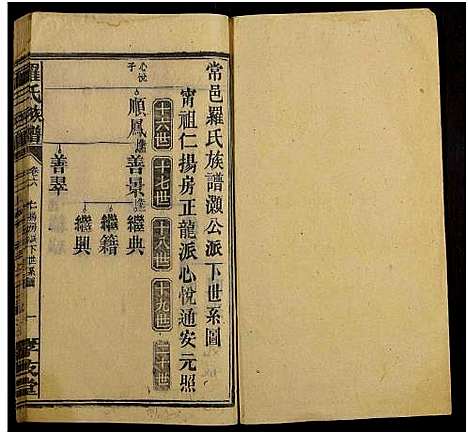 常邑羅氏族譜灝公派下世系圖
甯祖仁揚房正龍派心悅通安元照
十六世 十七世 十八世 十九世 二十世
心悅子
順鳳 善景 繼典
繼籍
善翠 繼興
羅氏族譜
卷六 仁揚房派下世系圖 一